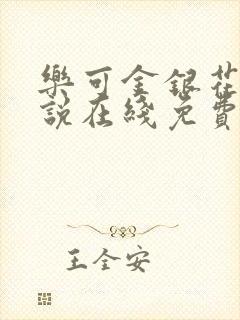 樂可金銀花
說在綫免費
王全安